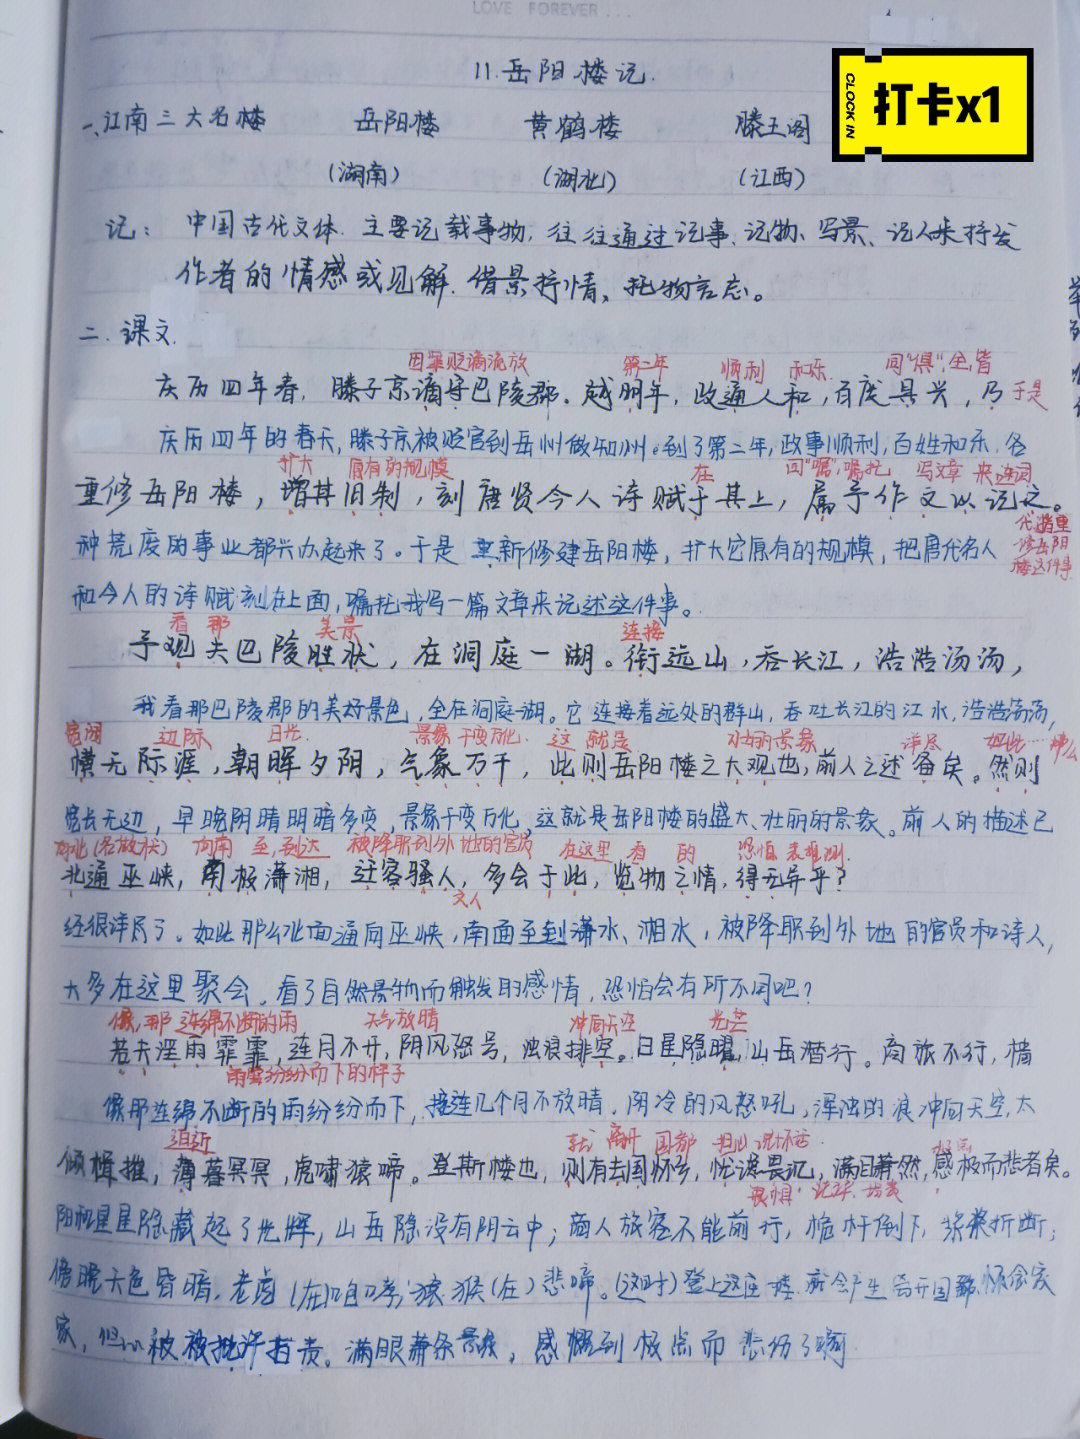 LOVE FOREVER...
11.岳阳楼记.
CLOCK IN 打卡x1
一、江南三大名楼 岳阳楼 黄鹤楼 滕王阁
(湖南) (湖北) (江西)
记: 中国古代文体. 主要记载事物, 往往通过记事、记物、写景、记人来抒发
作者的情感或见解. 借景抒情、托物言志。
二.课文.
因罪贬谪流放 第二年 顺利 和乐 同"俱",全,皆
庆历四年春, 滕子京谪守巴陵郡。越明年, 政通人和, 百废具兴, 乃 于是
庆历四年的春天, 滕子京被贬官到岳州做知州。到了第二年, 政事顺利, 百姓和乐, 各
扩大 原有的规模 在 同"嘱",嘱托 写文章 来 连词
重修岳阳楼, 增其旧制, 刻唐贤今人诗赋于其上, 属予作文以记之。
代指重修岳阳楼这件事
种荒废的事业都兴办起来了。于是重新修建岳阳楼, 扩大它原有的规模, 把唐代名人
和今人的诗赋刻在上面, 嘱托我写一篇文章来记述这件事。
看 那 美景 连接
予观夫巴陵胜状, 在洞庭一湖。衔远山, 吞长江, 浩浩汤汤,
我看那巴陵郡的美好景色, 全在洞庭湖。它连接着远处的群山, 吞吐长江的江水, 浩浩荡荡,
边际 日光 景象千变万化 这 就是 壮丽的景象 详尽 如此……那么
横无际涯, 朝晖夕阴, 气象万千, 此则岳阳楼之大观也, 前人之述备矣。然则
宽长无边, 早晚阴晴明暗多变, 景象千变万化, 这就是岳阳楼的盛大、壮丽的景象。前人的描述已
向南 至,到达 被降职到外地的官员 在这里 看 的 恐怕 表推测
北通巫峡, 南极潇湘, 迁客骚人, 多会于此, 览物之情, 得无异乎?
文人
经很详尽了。如此那么北面通向巫峡, 南面至到潇水、湘水, 被降职到外地的官员和诗人,
大多在这里聚会, 看了自然景物而触发的感情, 恐怕会有所不同吧?
像,那 连绵不断的雨 天气放晴 冲向天空 光芒
若夫淫雨霏霏, 连月不开, 阴风怒号, 浊浪排空。日星隐曜, 山岳潜行。商旅不行, 樯
雨雪纷纷而下的样子
像那连绵不断的雨纷纷而下, 接连几个月不放晴, 阴冷的风怒吼, 浑浊的浪冲向天空, 太
迫近 就 离开 国都 担心 说坏话
倾楫摧, 薄暮冥冥, 虎啸猿啼。登斯楼也, 则有去国怀乡, 忧谗畏讥, 满目萧然, 感极而悲者矣。
畏惧
阳和星星隐藏起了光辉, 山岳隐没有阴云中; 商人旅客不能前行, 桅杆倒下, 船桨折断;
傍晚天色昏暗, 老虎(在)咆哮, 猿猴(在)悲啼。(这时)登上这座楼 就会产生离开国都 怀念家
家, 被批评指责。满眼萧条景象, 感慨到极点而悲伤了啊